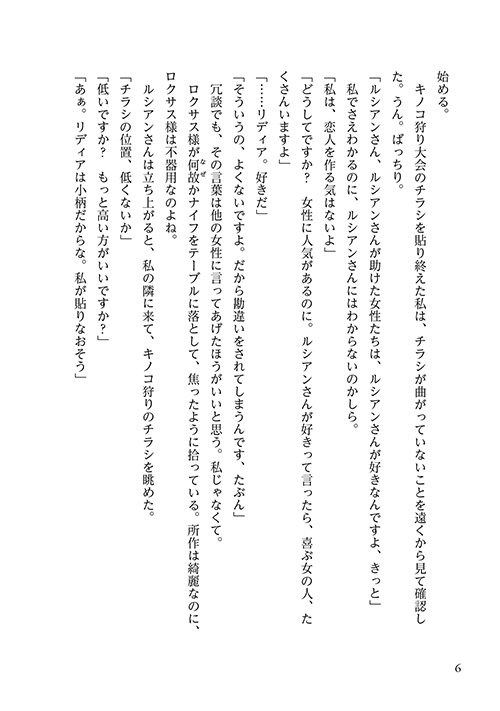 始める。
　キノコ狩り大会のチラシを貼り終えた私は、チラシが曲がっていないことを遠くから見て確認し
た。うん。ばっちり。
「ルシアンさん、ルシアンさんが助けた女性たちは、ルシアンさんが好きなんですよ、きっと」
　私でさえわかるのに、ルシアンさんにはわからないのかしら。
「私は、恋人を作る気はないよ」
「どうしてですか？　女性に人気があるのに。ルシアンさんが好きって言ったら、喜ぶ女の人、た
くさんいますよ」
「……リディア。好きだ」
「そういうの、よくないですよ。だから勘違いをされてしまうんです、たぶん」
　冗談でも、その言葉は他の女性に言ってあげたほうがいいと思う。私じゃなくて。
　ロクサス様が何故かナイフをテーブルに落として、焦ったように拾っている。所作は綺麗なのに、
ロクサス様は不器用なのよね。
　ルシアンさんは立ち上がると、私の隣に来て、キノコ狩りのチラシを眺めた。
「チラシの位置、低くないか」
「低いですか？　もっと高い方がいいですか？」
「あぁ。リディアは小柄だからな。私が貼りなおそう」
なぜ
6